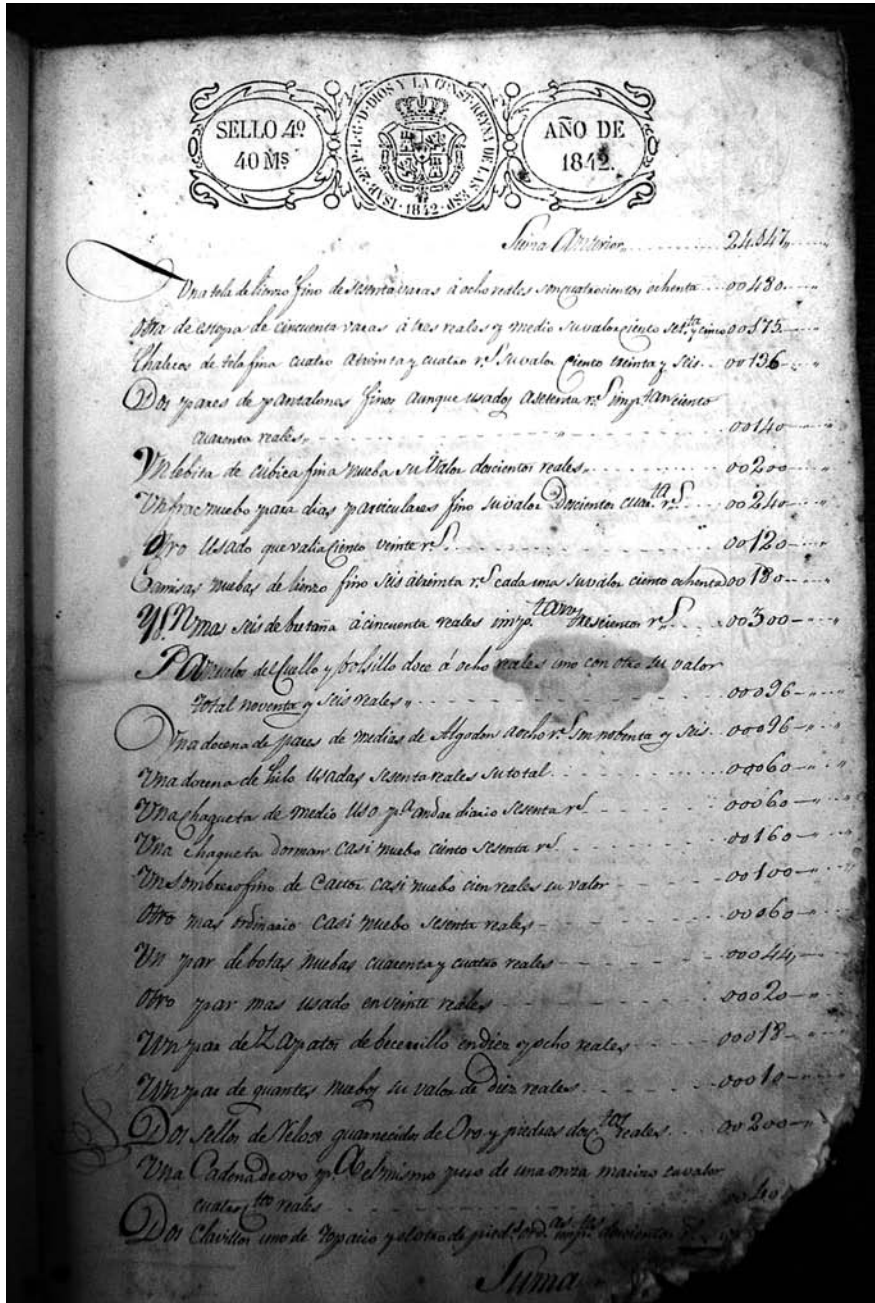 SELLO 4º
40 Ms.
ISAB. 2ª P. L. G. D. DIOS Y LA CONST. REYNA DE LAS ESP. 1842
AÑO DE
1842.
Suma Anterior 24.847
Una tela de lienzo fino de sesenta varas á ocho reales son quatrocientos ochenta 00480
Otra de estopa de cincuenta varas á tres reales y medio su valor ciento set.ta y cinco 00175
Chalecos de tela fina cuatro atreinta y cuatro r.s su valor Ciento treinta y seis 00136
Dos pares de pantalones finos aunque usados asetenta r.s imp.tan ciento
cuarenta reales 00140
Un lebita de cúbica fina nueba su Valor doscientos reales 00200
Un frac nuebo para dias particulares fino su valor Doscientos cuar.ta r.s 00240
Otro Usado que valia Ciento veinte r.s 00120
Camisas nuebas de lienzo fino seis átreinta r.s cada una su valor ciento ochenta 00180
Yd.n mas seis de bretaña á cincuenta reales impo.tan trescientos r.s 00300
Pañuelos del Cuello y bolsillo doce á ocho reales uno con otro su valor
total noventa y seis reales 00096
Una docena de pares de medias de Algodon aocho r.s son nobenta y seis 00096
Una docena de hilo Usadas sesenta reales su total 00060
Una Chaqueta de medio Uso p.a andar diario sesenta r.s 00060
Una chaqueta dorman casi nuebo ciento sesenta r.s 00160
Un Sombrero fino de Castor casi nuebo cien reales su valor 00100
Otro mas ordinario casi nuebo sesenta reales 00060
Un par de botas nuebas cuarenta y cuatro reales 00044
Otro par mas usado en veinte reales 00020
Un par de Zapatos de becerrillo en diez y ocho reales 00018
Un par de guantes nuebos su valor de diez reales 00010
Dos sellos de Relox guarnecidos de Oro y piedras dos.tos reales 00200
Una Cadena de oro p.a el mismo peso de una onza macizo su valor
cuatro.tos reales 0040
Dos Clavillos uno de Topacio y el otro de pied.s ord.as doscientos r.s
Suma